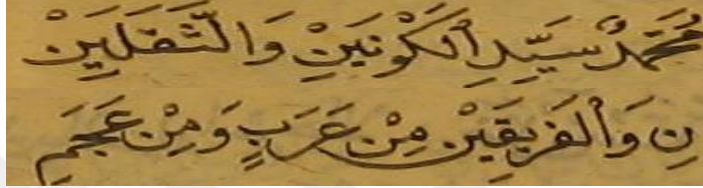 مُحَمَّدٌ سَيِّدِ الْكَوْنَيْنِ وَالثَّقَلَيْنِ
نِ وَالْفَرِيقَيْنِ مِنْ عَرَبٍ وَمِنْ عَجَمِ